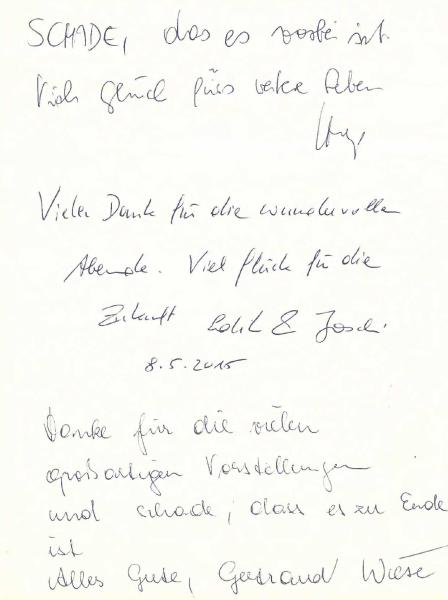 SCHADE, das es vorbei ist.
Viel Glück fürs weitere Leben
Vielen Dank für die wundervollen
Abende. Viel Glück für die
Zukunft Edith & Joschi
8.5.2015
Danke für die vielen
großartigen Vorstellungen
und schade, dass es zu Ende
ist
Alles Gute, Gertraud Wiese